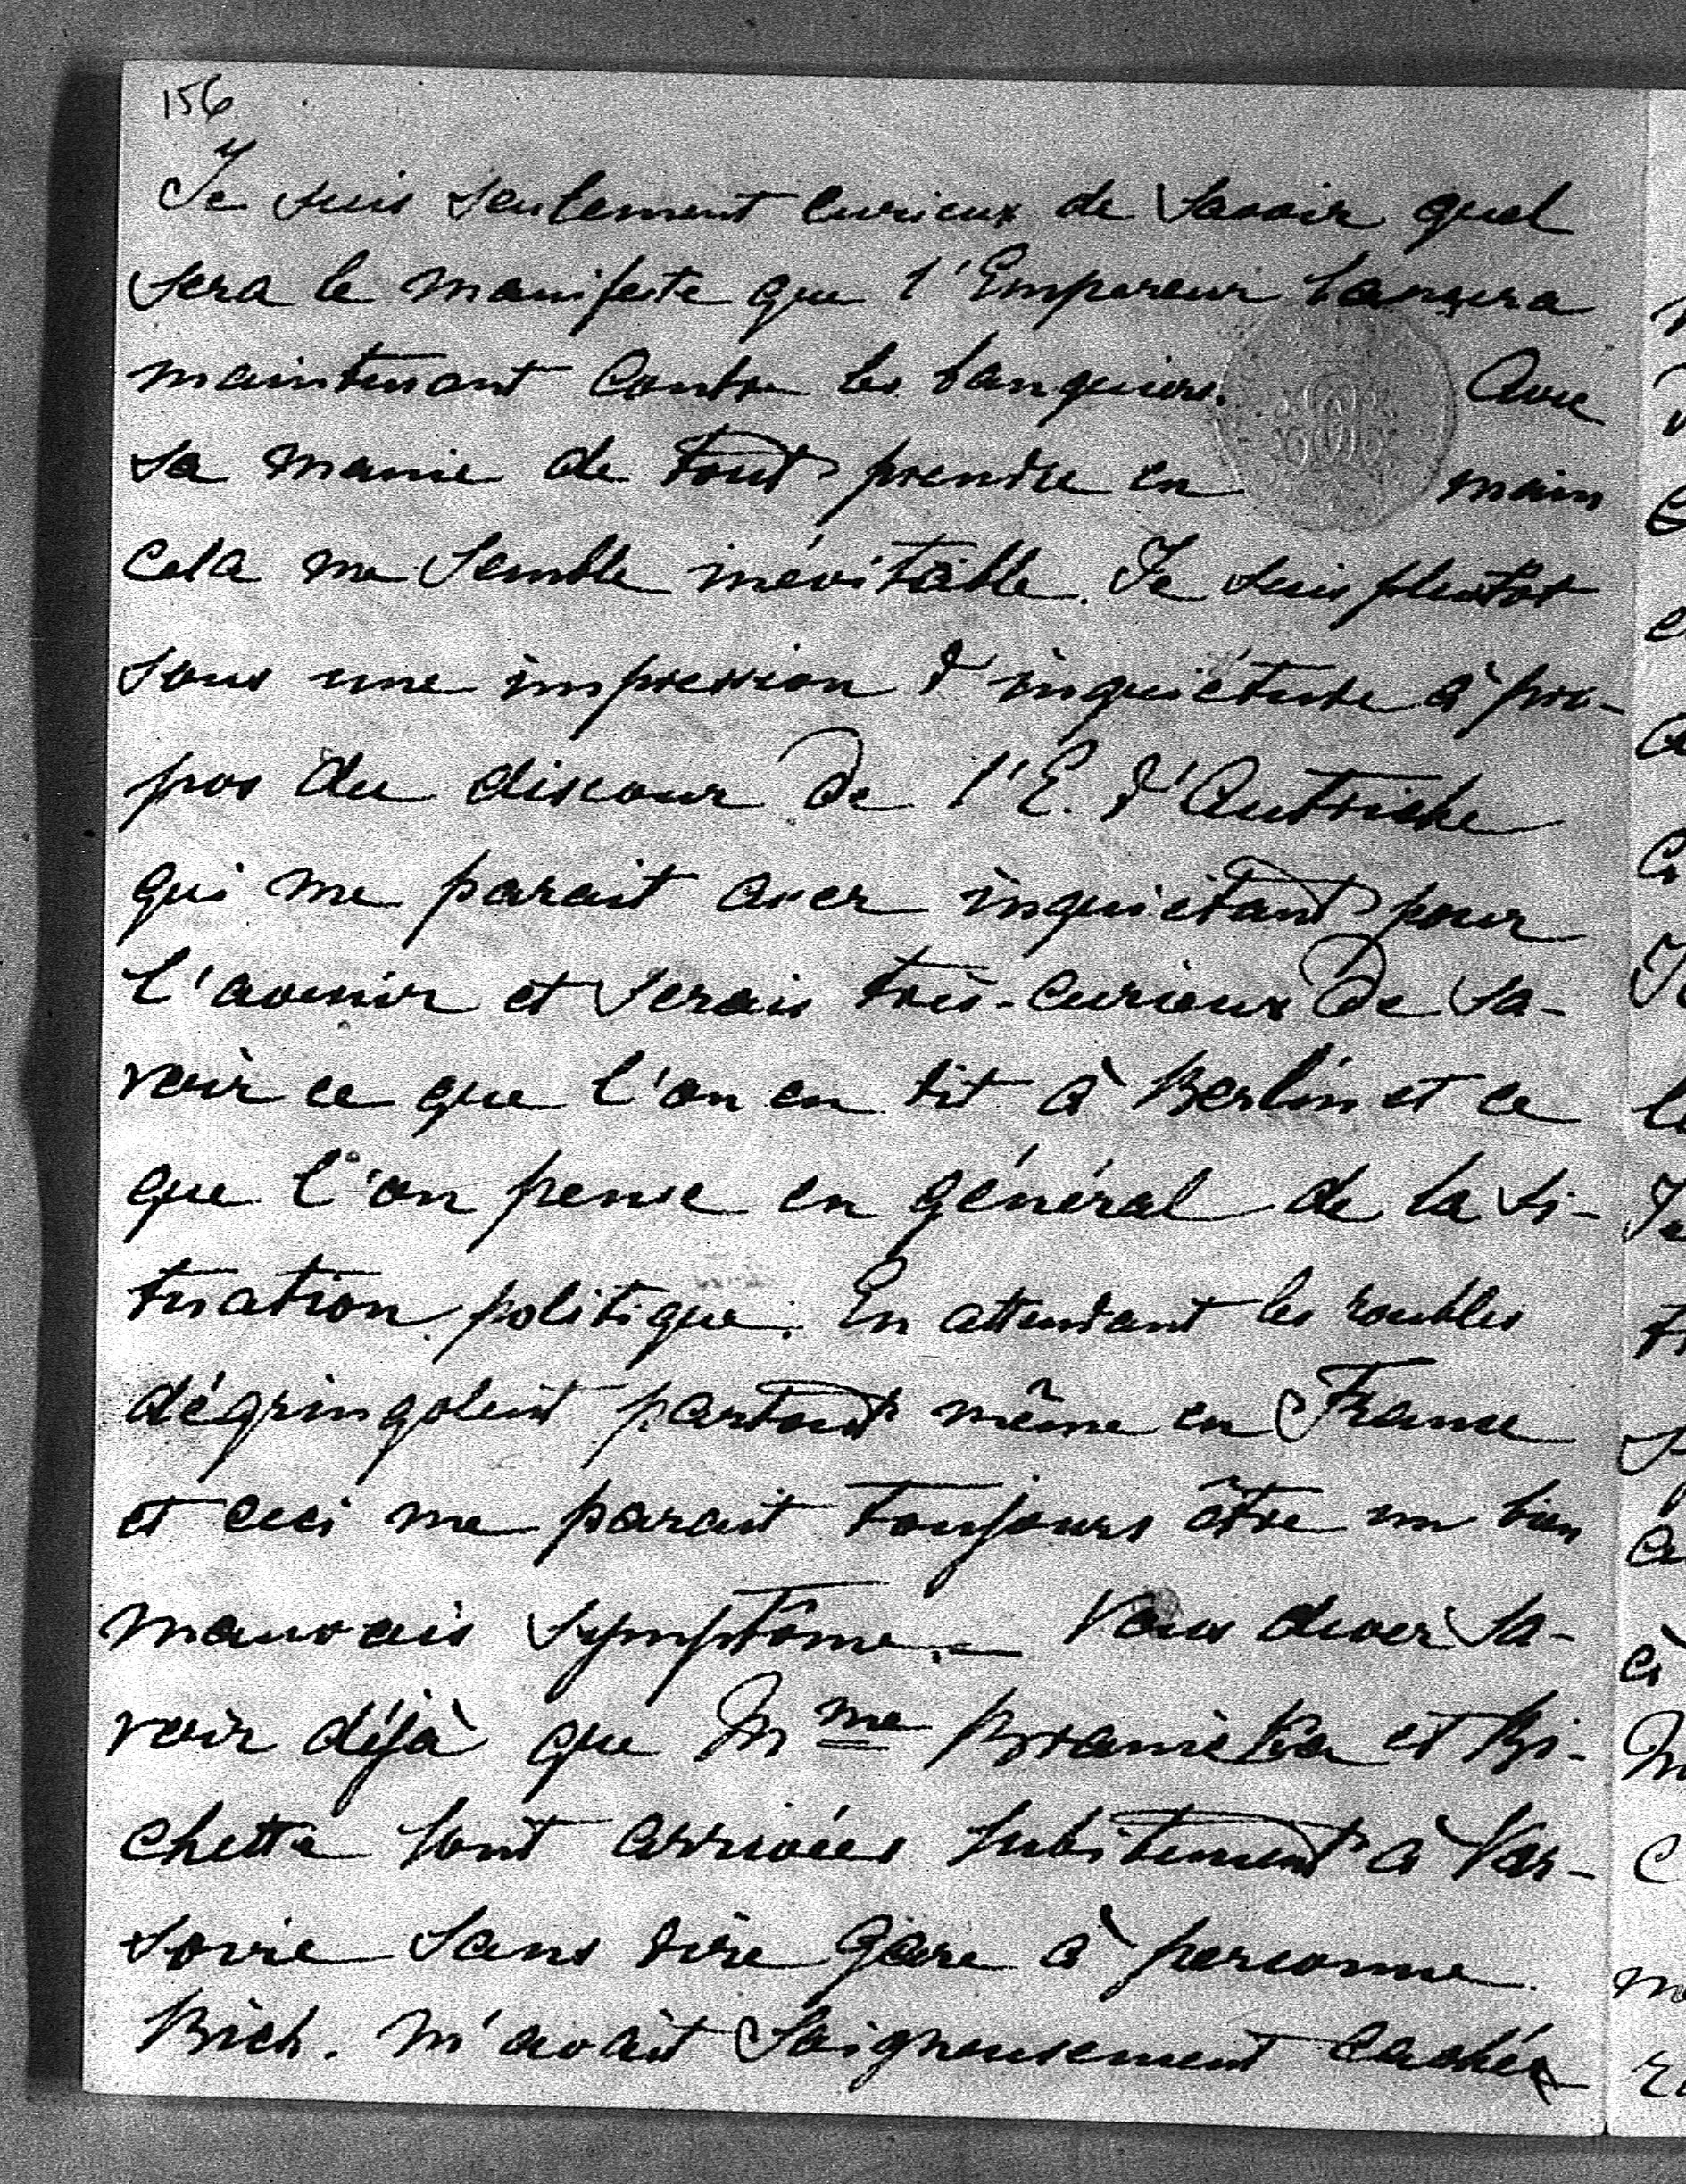 156.
Je suis seulement curieux de savoir quel
sera le manifeste que l'Empereur lancera
maintenant contre les banquiers. Avec
sa manie de tout prendre en mains
cela me semble inévitable. Je suis plutôt
sous une impression d'inquiétude à pro-
pos du discour de l'E. d'Autriche
qui me parait assez inquiétant pour
l'avenir et serais très-curieux de sa-
voir ce que l'on en dit à Berlin et ce
que l'on pense en général de la si-
tuation politique. En attendant les roubles
dégringolent partout même en France
et ceci me parait toujours être un bien
mauvais symptôme. — Vous devez sa-
voir déjà que Mme Branicka et Bi-
chette sont arrivées subitement à Var-
sovie sans dire gare à personne.
Bich. m'avait soigneusement cachée